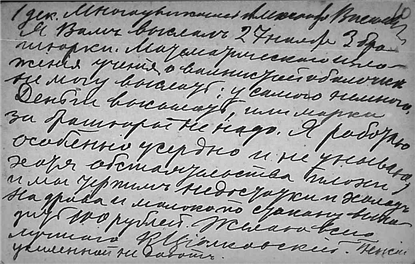 1 дек. Многоуважаемый Александр Васильевич
Я Вам выслал 27 ноября 3 бро-
шюрки. Математического изло-
жения учения о волнистой оболочке
не могу выслать: у самого немного.
Деньги высылать, или марки
за брошюры не надо. Я работаю
особенно усердно и не унываю,
хотя обстоятельства плохи
и мы терпим недостатки и холод.
На дрова и молоко
100 рублей. Желаю всего
лучшего К Циолковский. Пенсии
усиленной не дают.